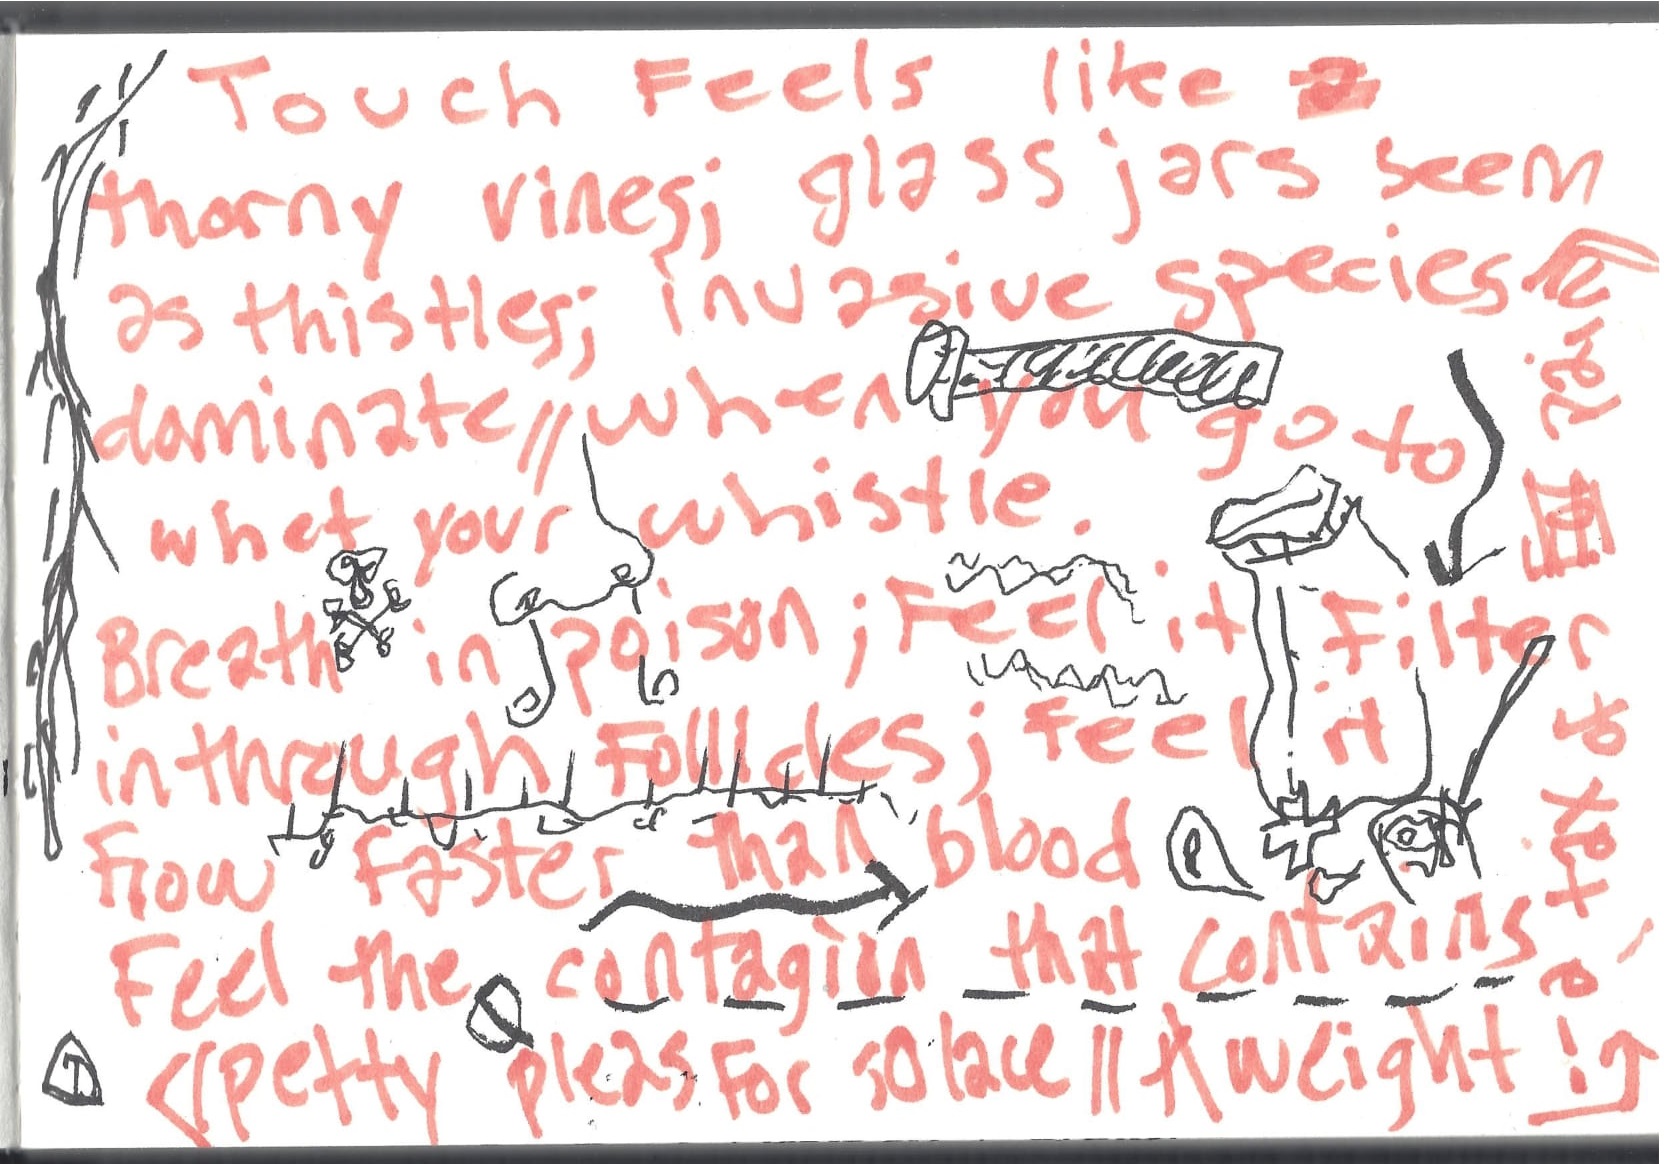 Touch Feels like
thorny vines; glass jars seem
as thistles; invasive species
dominate // when you go to
whet your whistle.
Breath in poison; Feel it Filter
in through Follicles; Feel it
Flow Faster than blood
Feel the contagion that contains
petty pleas For solace // A weight